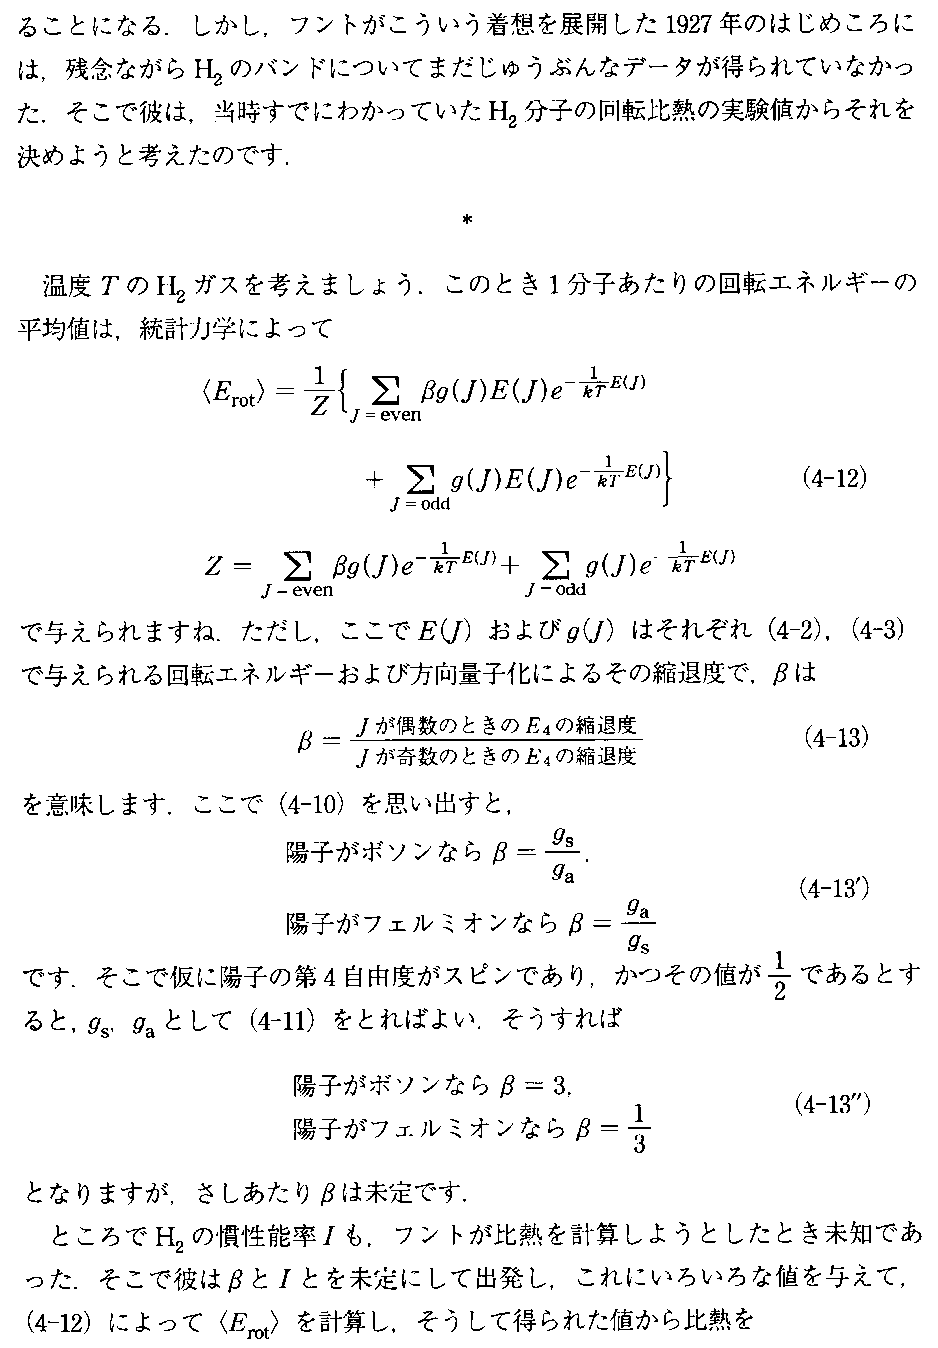 ることになる．しかし，フントがこういう着想を展開した 1927 年のはじめころに
は，残念ながら H₂ のバンドについてまだじゅうぶんなデータが得られていなかっ
た．そこで彼は，当時すでにわかっていた H₂ 分子の回転比熱の実験値からそれを
決めようと考えたのです．
*
温度 T の H₂ ガスを考えましょう．このとき 1 分子あたりの回転エネルギーの
平均値は，統計力学によって
⟨E_rot⟩ = 1/Z { Σ_{J=even} βg(J)E(J)e^{-1/kT E(J)}
+ Σ_{J=odd} g(J)E(J)e^{-1/kT E(J)} } (4-12)
Z = Σ_{J=even} βg(J)e^{-1/kT E(J)} + Σ_{J=odd} g(J)e^{-1/kT E(J)}
で与えられますね．ただし，ここで E(J) および g(J) はそれぞれ (4-2)，(4-3)
で与えられる回転エネルギーおよび方向量子化によるその縮退度で，β は
β = J が偶数のときの E₄ の縮退度 / J が奇数のときの E₄ の縮退度 (4-13)
を意味します．ここで (4-10) を思い出すと，
陽子がボソンなら β = g_s/g_a．
陽子がフェルミオンなら β = g_a/g_s (4-13′)
です．そこで仮に陽子の第 4 自由度がスピンであり，かつその値が 1/2 であるとす
ると，g_s，g_a として (4-11) をとればよい．そうすれば
陽子がボソンなら β = 3，
陽子がフェルミオンなら β = 1/3 (4-13″)
となりますが，さしあたり β は未定です．
ところで H₂ の慣性能率 I も，フントが比熱を計算しようとしたとき未知であ
った．そこで彼は β と I とを未定にして出発し，これにいろいろな値を与えて，
(4-12) によって ⟨E_rot⟩ を計算し，そうして得られた値から比熱を